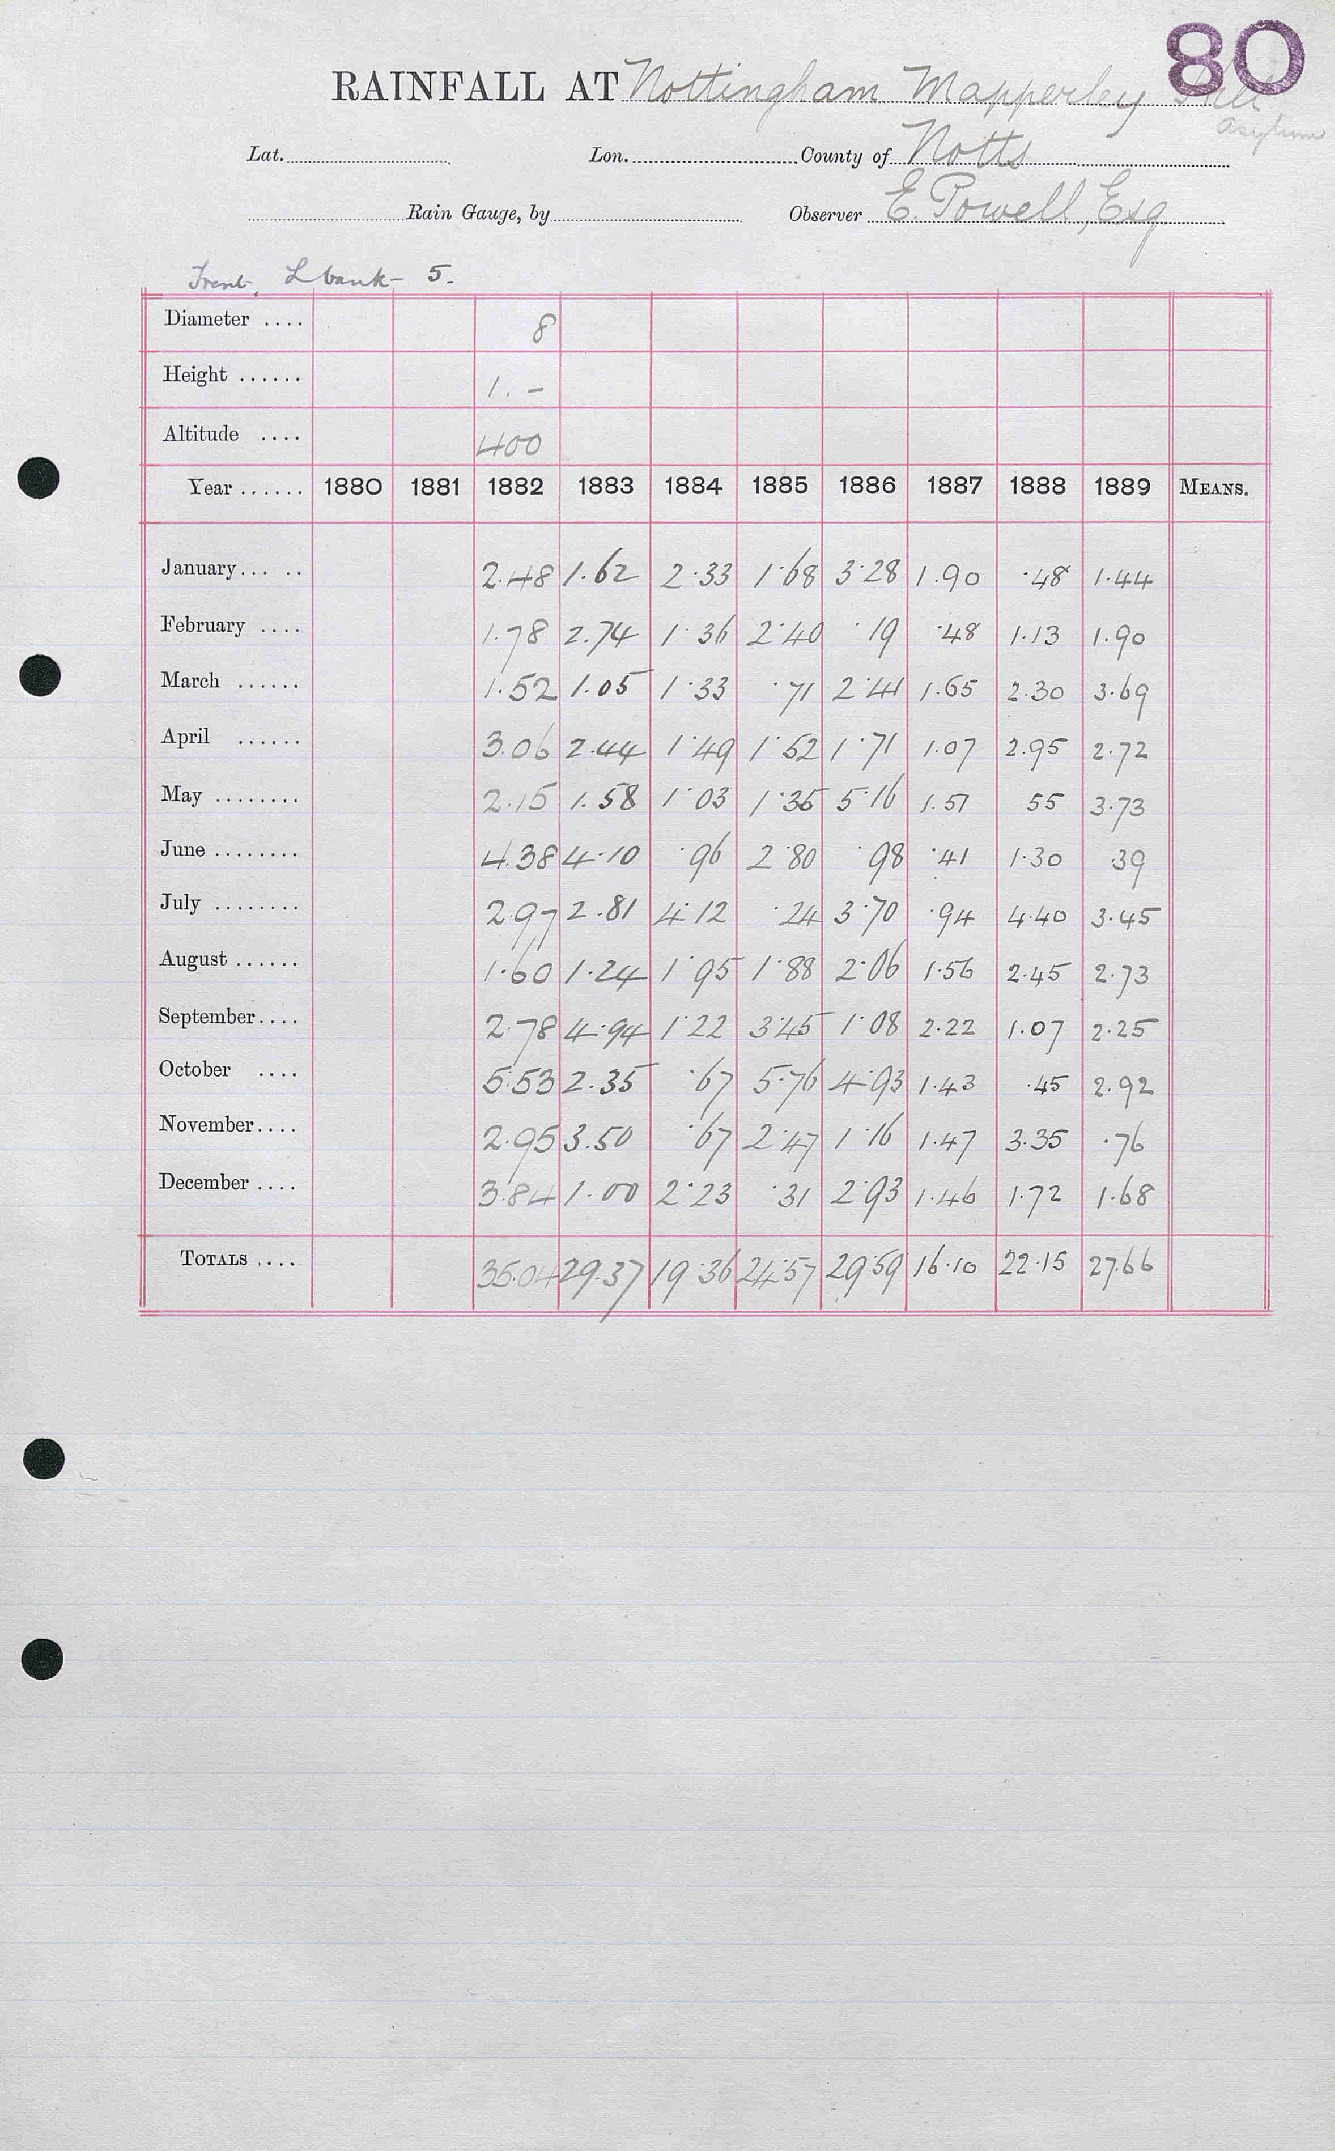 80
RAINFALL AT Nottingham Mapperley Hill
Asylum
Lat. Lon. County of Notts
Rain Gauge, by Observer E. Powell, Esq
Trent, L bank - 5.
Diameter .... 8
Height ...... 1. -
Altitude .... 400
Year ...... 1880 1881 1882 1883 1884 1885 1886 1887 1888 1889 MEANS.
January... .. 2.48 1.62 2.33 1.68 3.28 1.90 .48 1.44
February .... 1.78 2.74 1.36 2.40 .19 .48 1.13 1.90
March ...... 1.52 1.05 1.33 .71 2.41 1.65 2.30 3.69
April ...... 3.06 2.44 1.49 1.52 1.71 1.07 2.95 2.72
May ........ 2.15 1.58 1.03 1.35 5.16 1.51 55 3.73
June ........ 4.38 4.10 .96 2.80 .98 .41 1.30 .39
July ........ 2.97 2.81 4.12 .24 3.70 .94 4.40 3.45
August ...... 1.60 1.24 1.95 1.88 2.06 1.56 2.45 2.73
September.... 2.78 4.94 1.22 3.45 1.08 2.22 1.07 2.25
October .... 5.53 2.35 .67 5.76 4.93 1.43 .45 2.92
November.... 2.95 3.50 .67 2.47 1.16 1.47 3.35 .76
December .... 3.84 1.00 2.23 .31 2.93 1.46 1.72 1.68
TOTALS .... 35.04 29.37 19.36 24.57 29.59 16.10 22.15 27.66